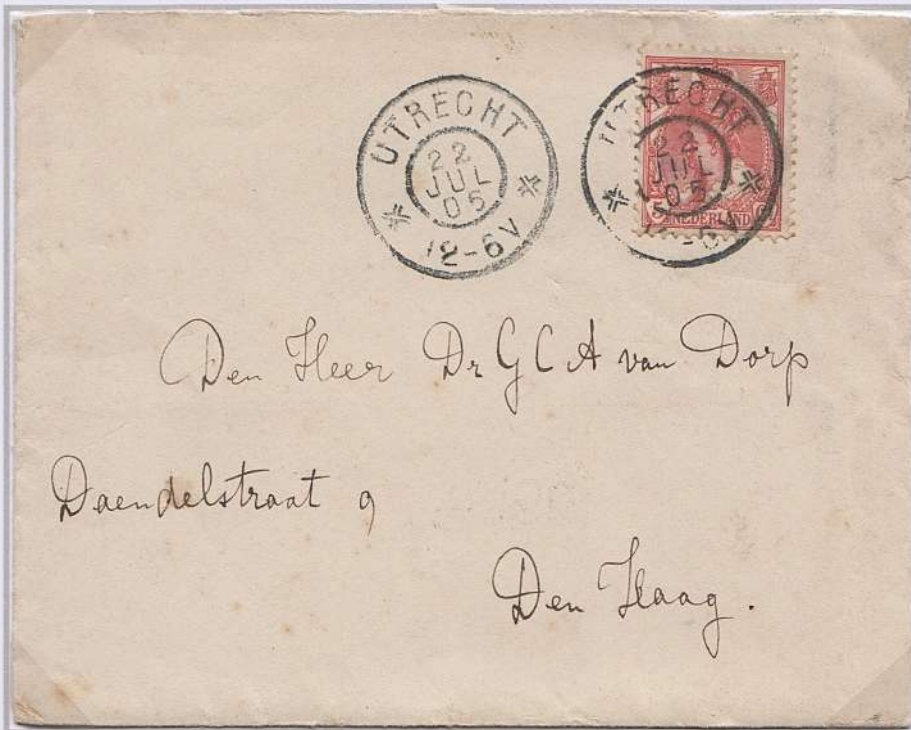 UTRECHT
22
JUL
05
12-6V
UTRECHT
22
JUL
05
12-6V
5 NEDERLAND C
Den Heer Dr G C A van Dorp
Daendelstraat 9
Den Haag.